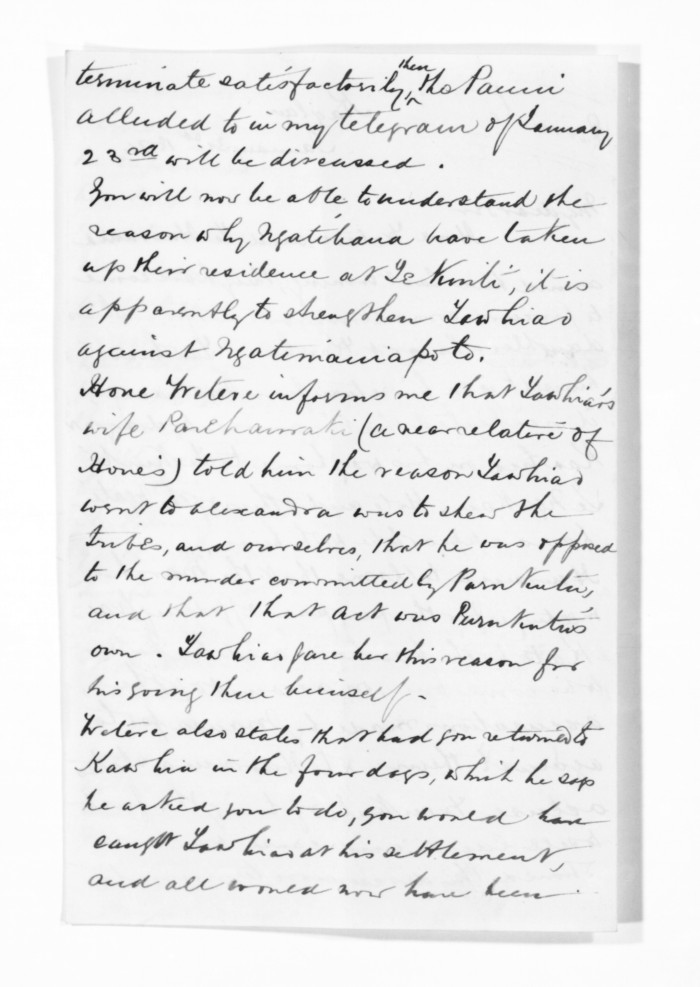 terminate satisfactorily, then the Pauui
alluded to in my telegram of January
23rd will be discussed.
You will now be able to understand the
reason why Ngatihaua have taken
up their residence at Te Kuiti, it is
apparently to strengthen Tawhiao
against Ngatimaniapoto.
Hone Wetere informs me that Tawhiao's
wife Parehauraki (a near relative of
Hone's) told him the reason Tawhiao
went to Alexandra was to shew the
tribes, and ourselves, that he was opposed
to the murder committed by Purukutu,
and that that act was Purukutu's
own. Tawhiao gave her this reason for
his going there himself.
Wetere also states that had you returned to
Kawhia in the four days, which he says
he asked you to do, you would have
caught Tawhiao at his settlement,
and all would now have been